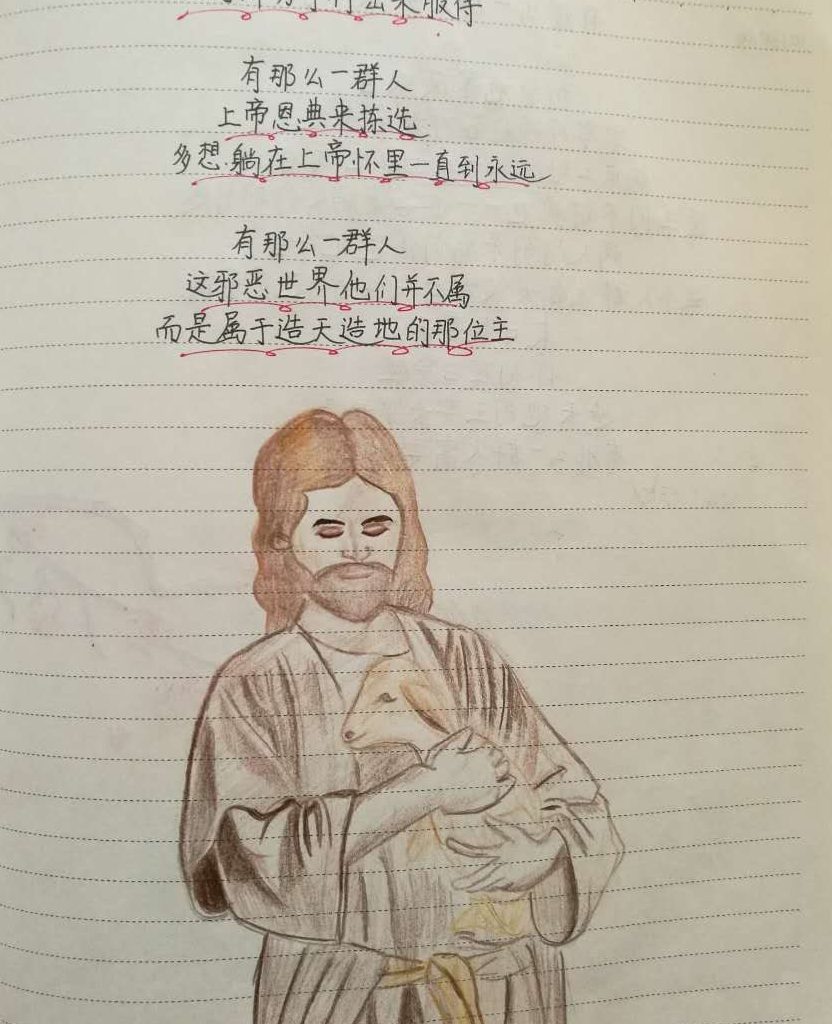 来服侍
有那么一群人
上帝恩典来拣选
多想躺在上帝怀里一直到永远
有那么一群人
这邪恶世界他们并不属
而是属于造天造地的那位主